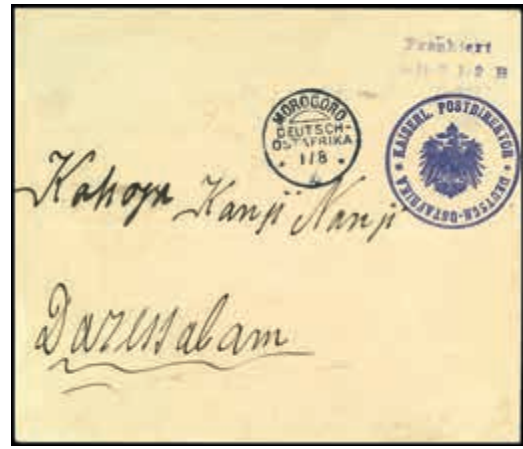 Frankiert
MOROGORO
DEUTSCH-
OSTAFRIKA
1/8
KAISERL. POSTDIREKTOR * DEUTSCH-OSTAFRIKA *
Kanji Nanji
Daressalam